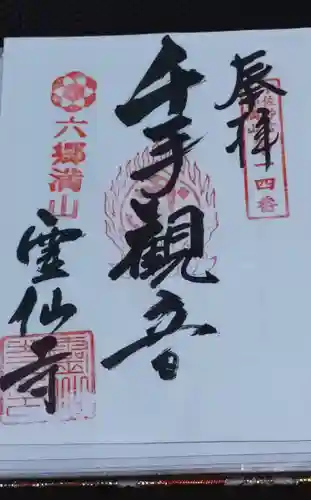 奉拝
四番
千手觀音
六郷満山
霊仙寺